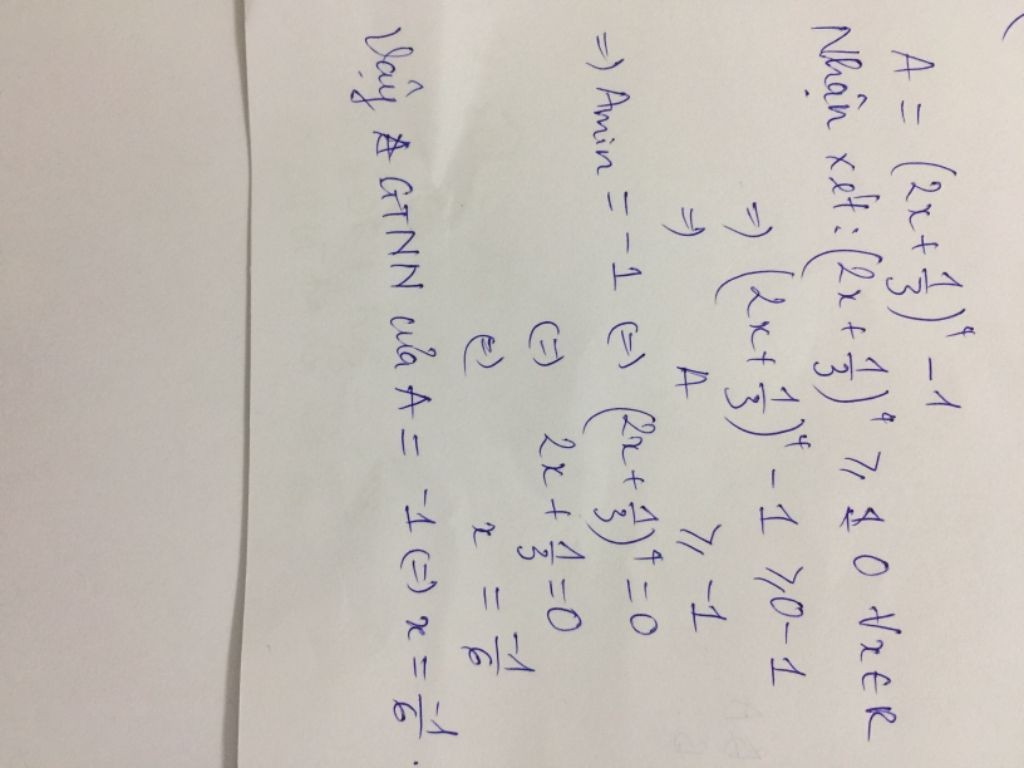 A = (2x + 1/3)⁴ - 1
Nhận xét: (2x + 1/3)⁴ ⩾ 0 ∀x∈R
=) (2x + 1/3)⁴ - 1 ⩾ 0 - 1
=) A ⩾ -1
=) Amin = -1 (=) (2x + 1/3)⁴ = 0
(=) 2x + 1/3 = 0
(=) x = -1/6
Vậy GTNN của A = -1 (=) x = -1/6.